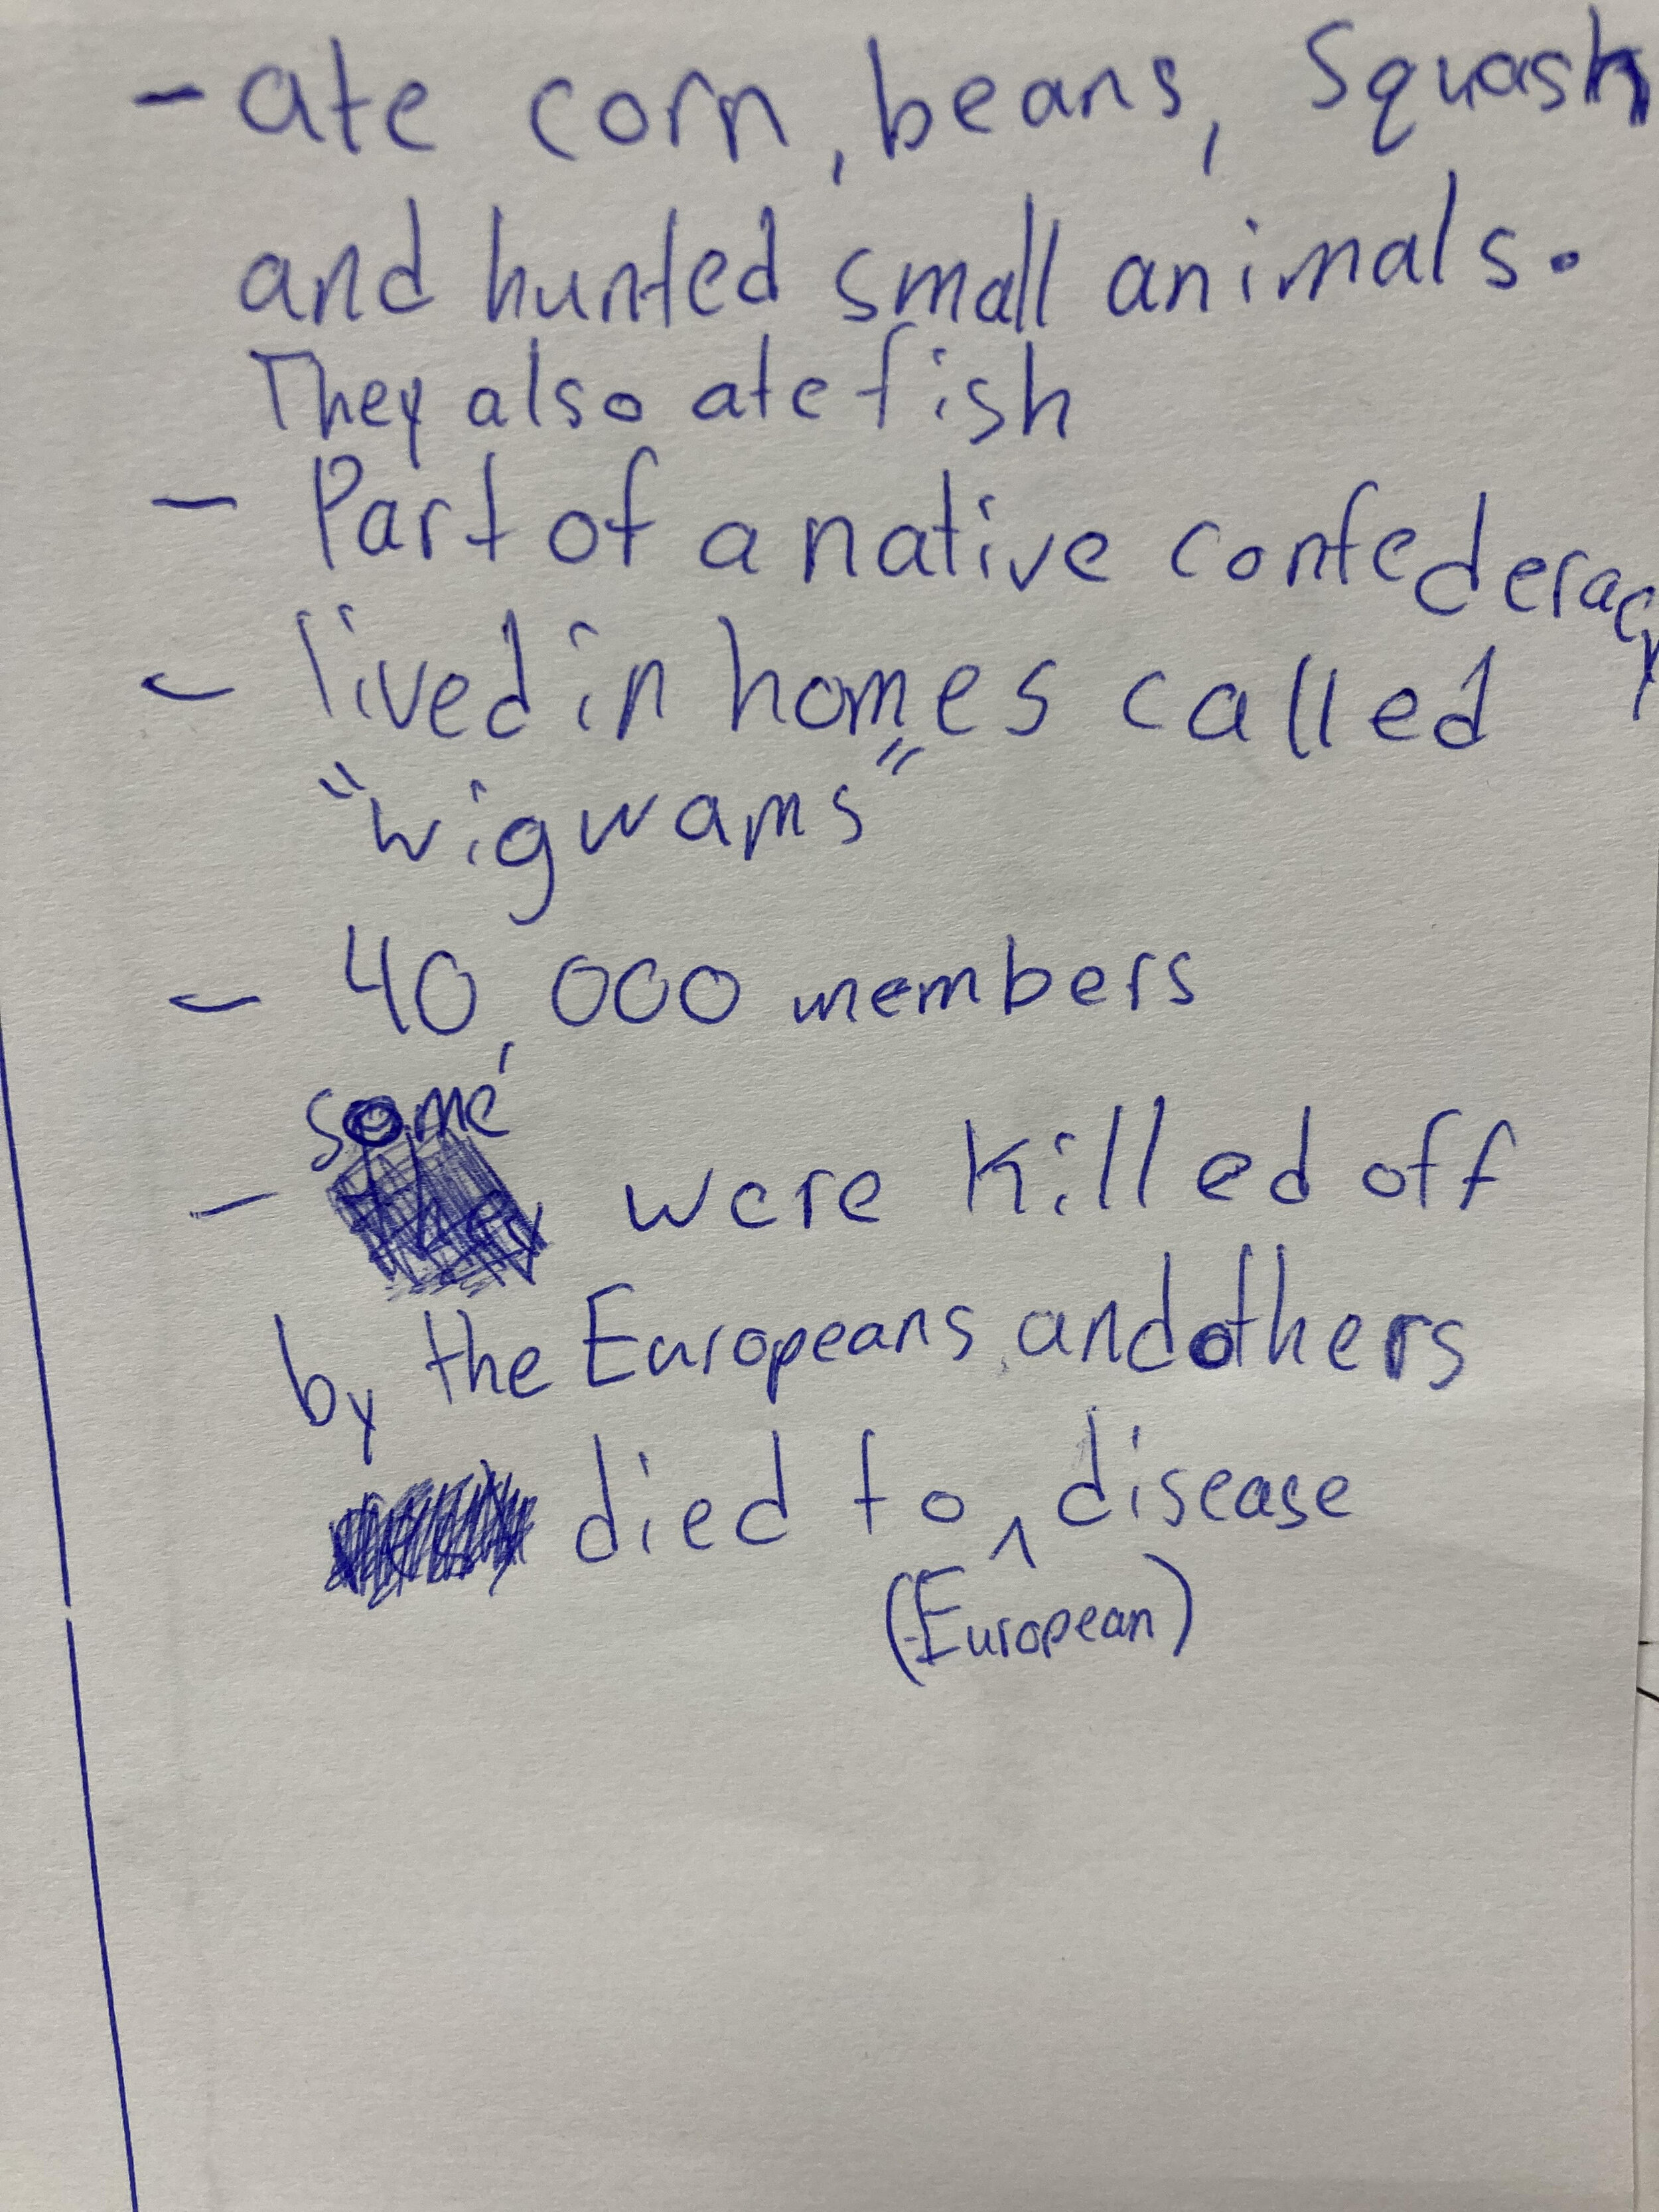 - ate corn, beans, Squash
and hunted small animals.
They also ate fish
- Part of a native confederacy
- lived in homes called
"wigwams"
- 40,000 members
some
- they were killed off
by the Europeans and others
died to ^ disease
(European)